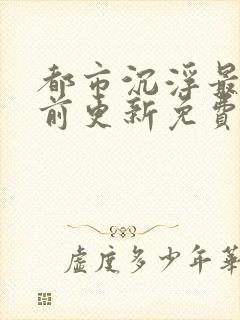 都市沉浮最
前更新免費
虛度多少年華